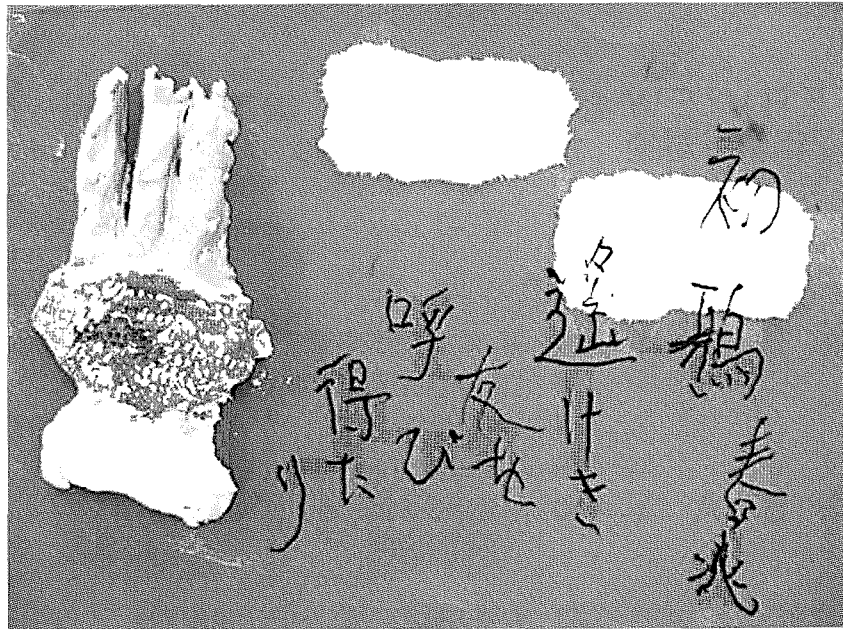 初鴉
遥けき
友を
呼び
得た
り